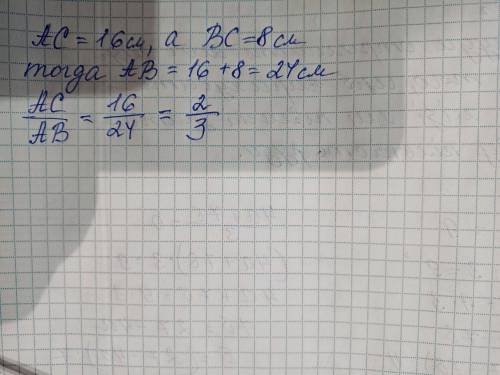 AC = 16см, а BC = 8см
тогда AB = 16 + 8 = 24см
AC/AB = 16/24 = 2/3